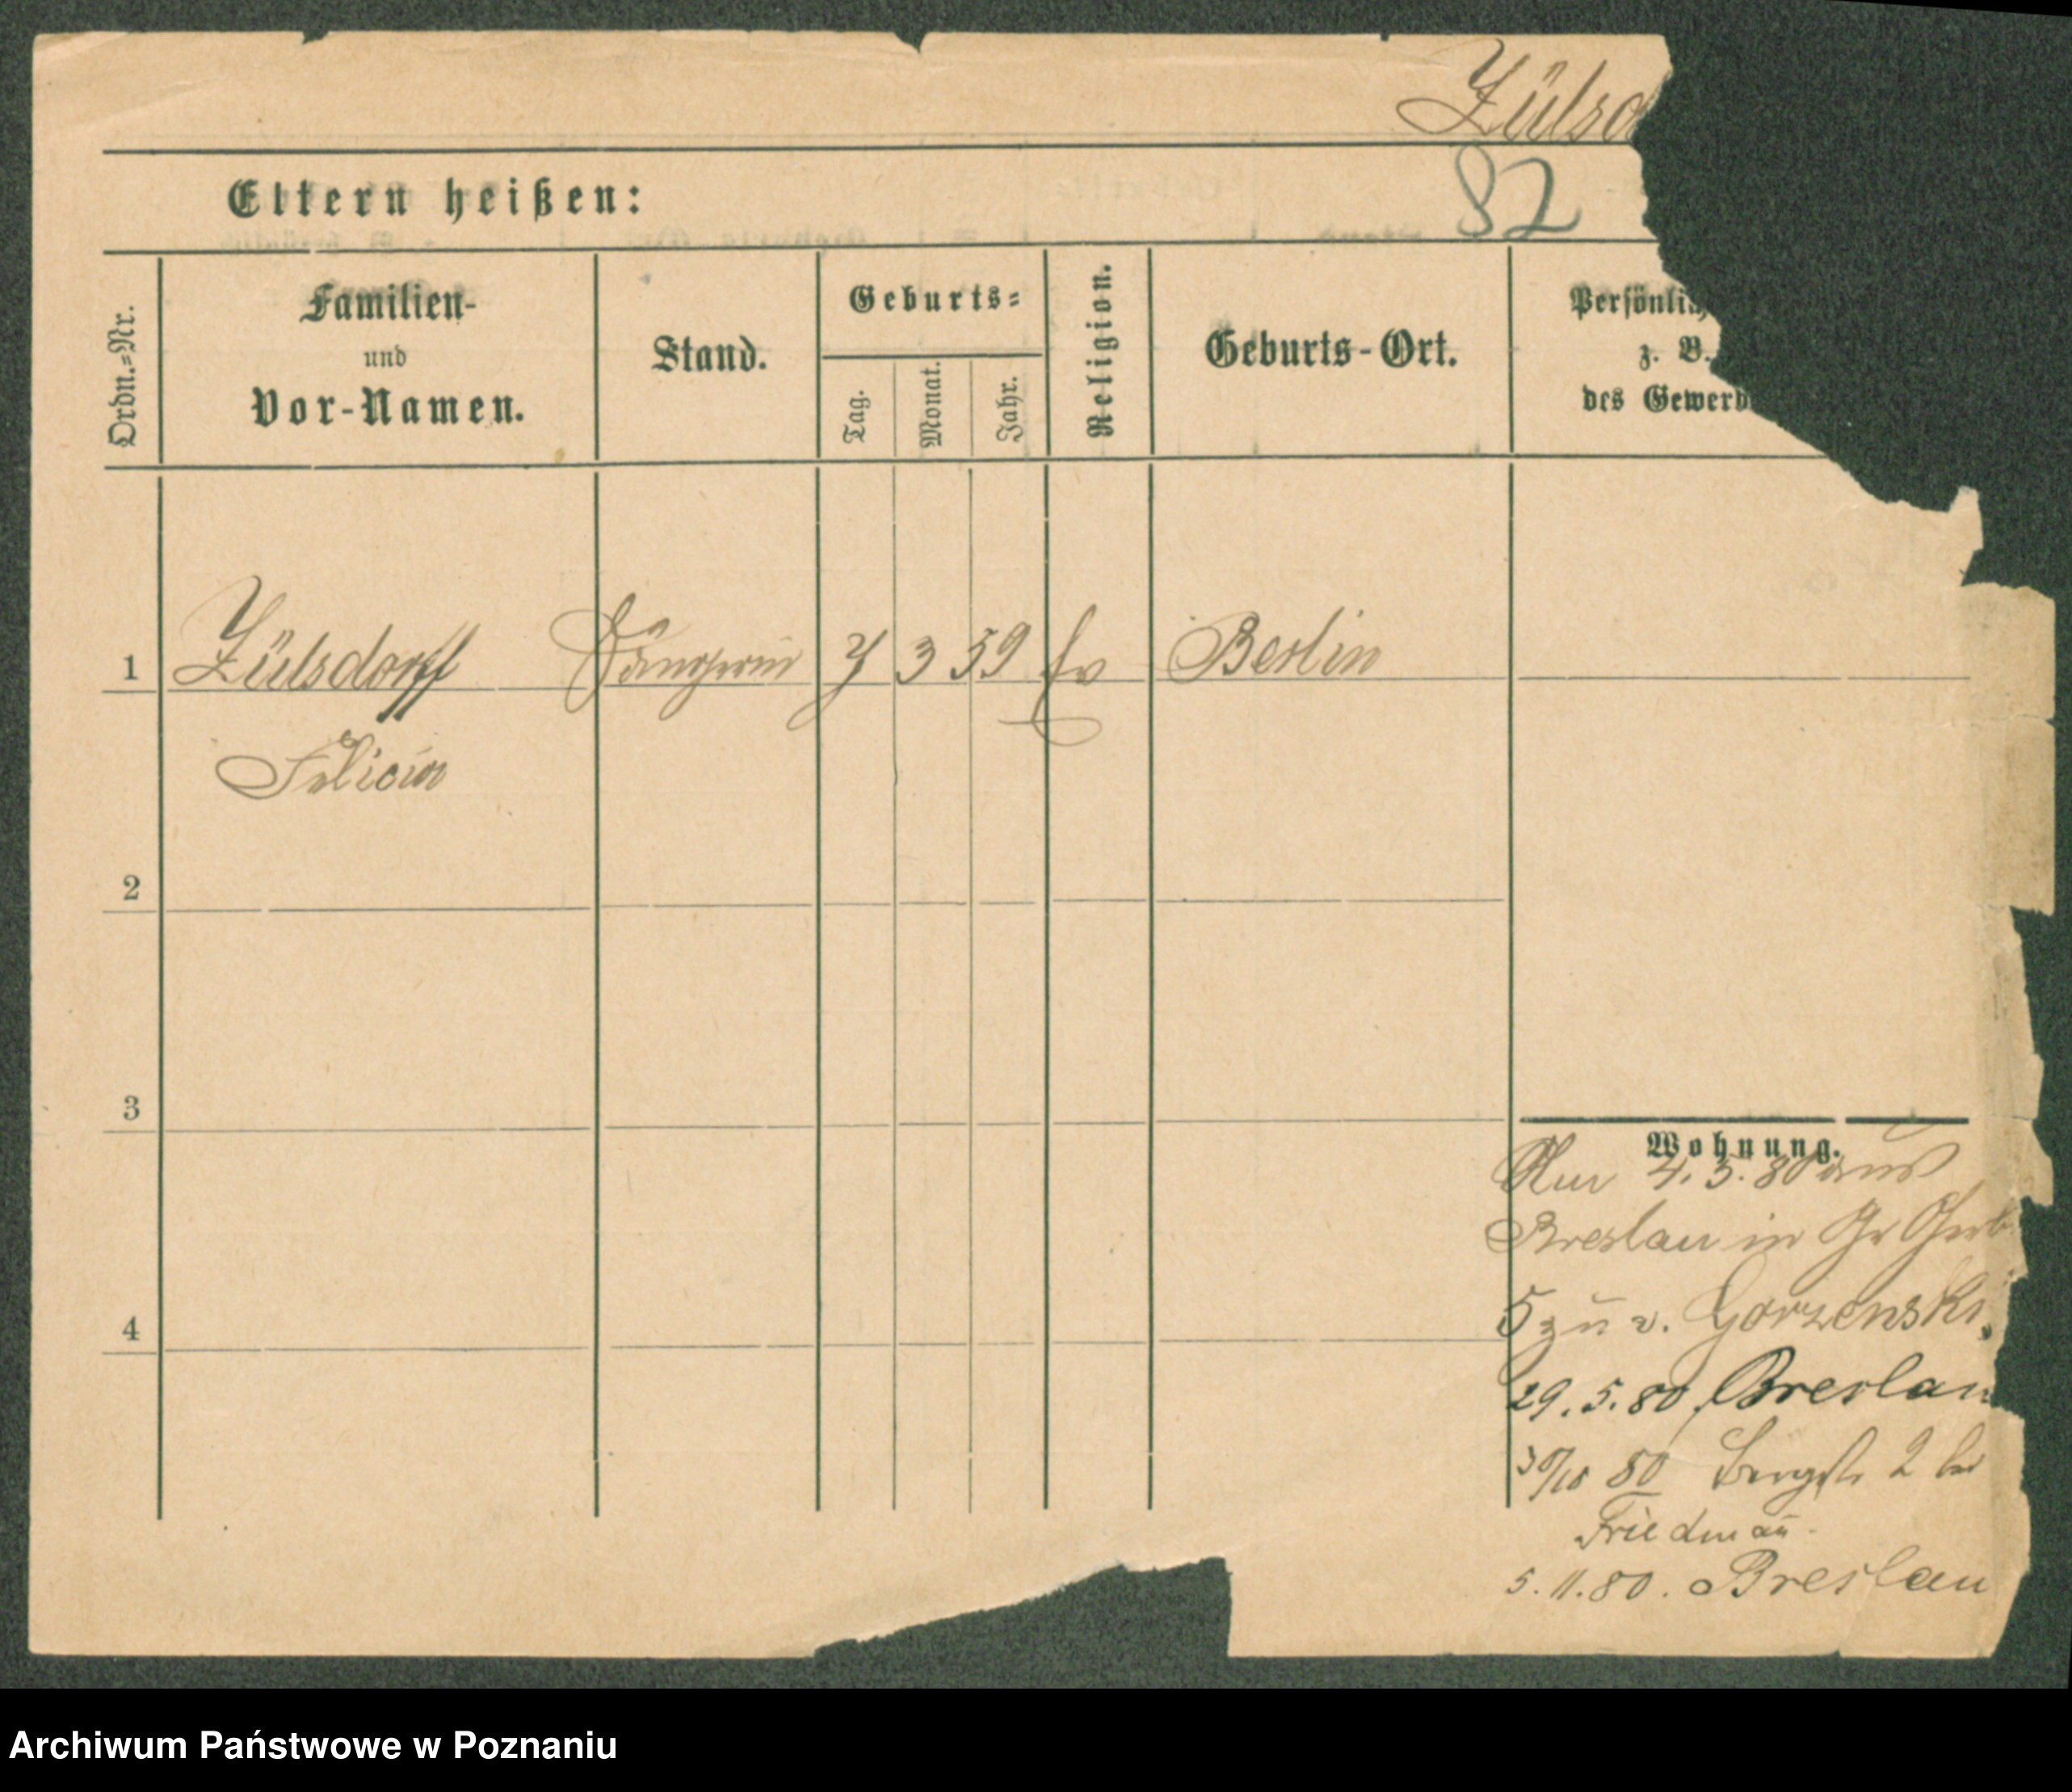 Zülsd
Eltern heißen:
82
Ordn.=Nr.
Familien-
und
Vor-Namen.
Stand.
Geburts=
Tag.
Monat.
Jahr.
Religion.
Geburts-Ort.
Persönlich
z. B.
des Gewerb
1 Zülsdorff Sängerin 7 3 59 Ev Berlin
Felicia
2
3
4
Wohnung.
Am 4. 3. 80 aus
Breslau in Gr Gerb
5 zu v. Gorzenski.
29. 5. 80. Breslau
30/10 80 Bergstr 2 bei
Friedmañ.
5. 11. 80. Breslau
Archiwum Państwowe w Poznaniu